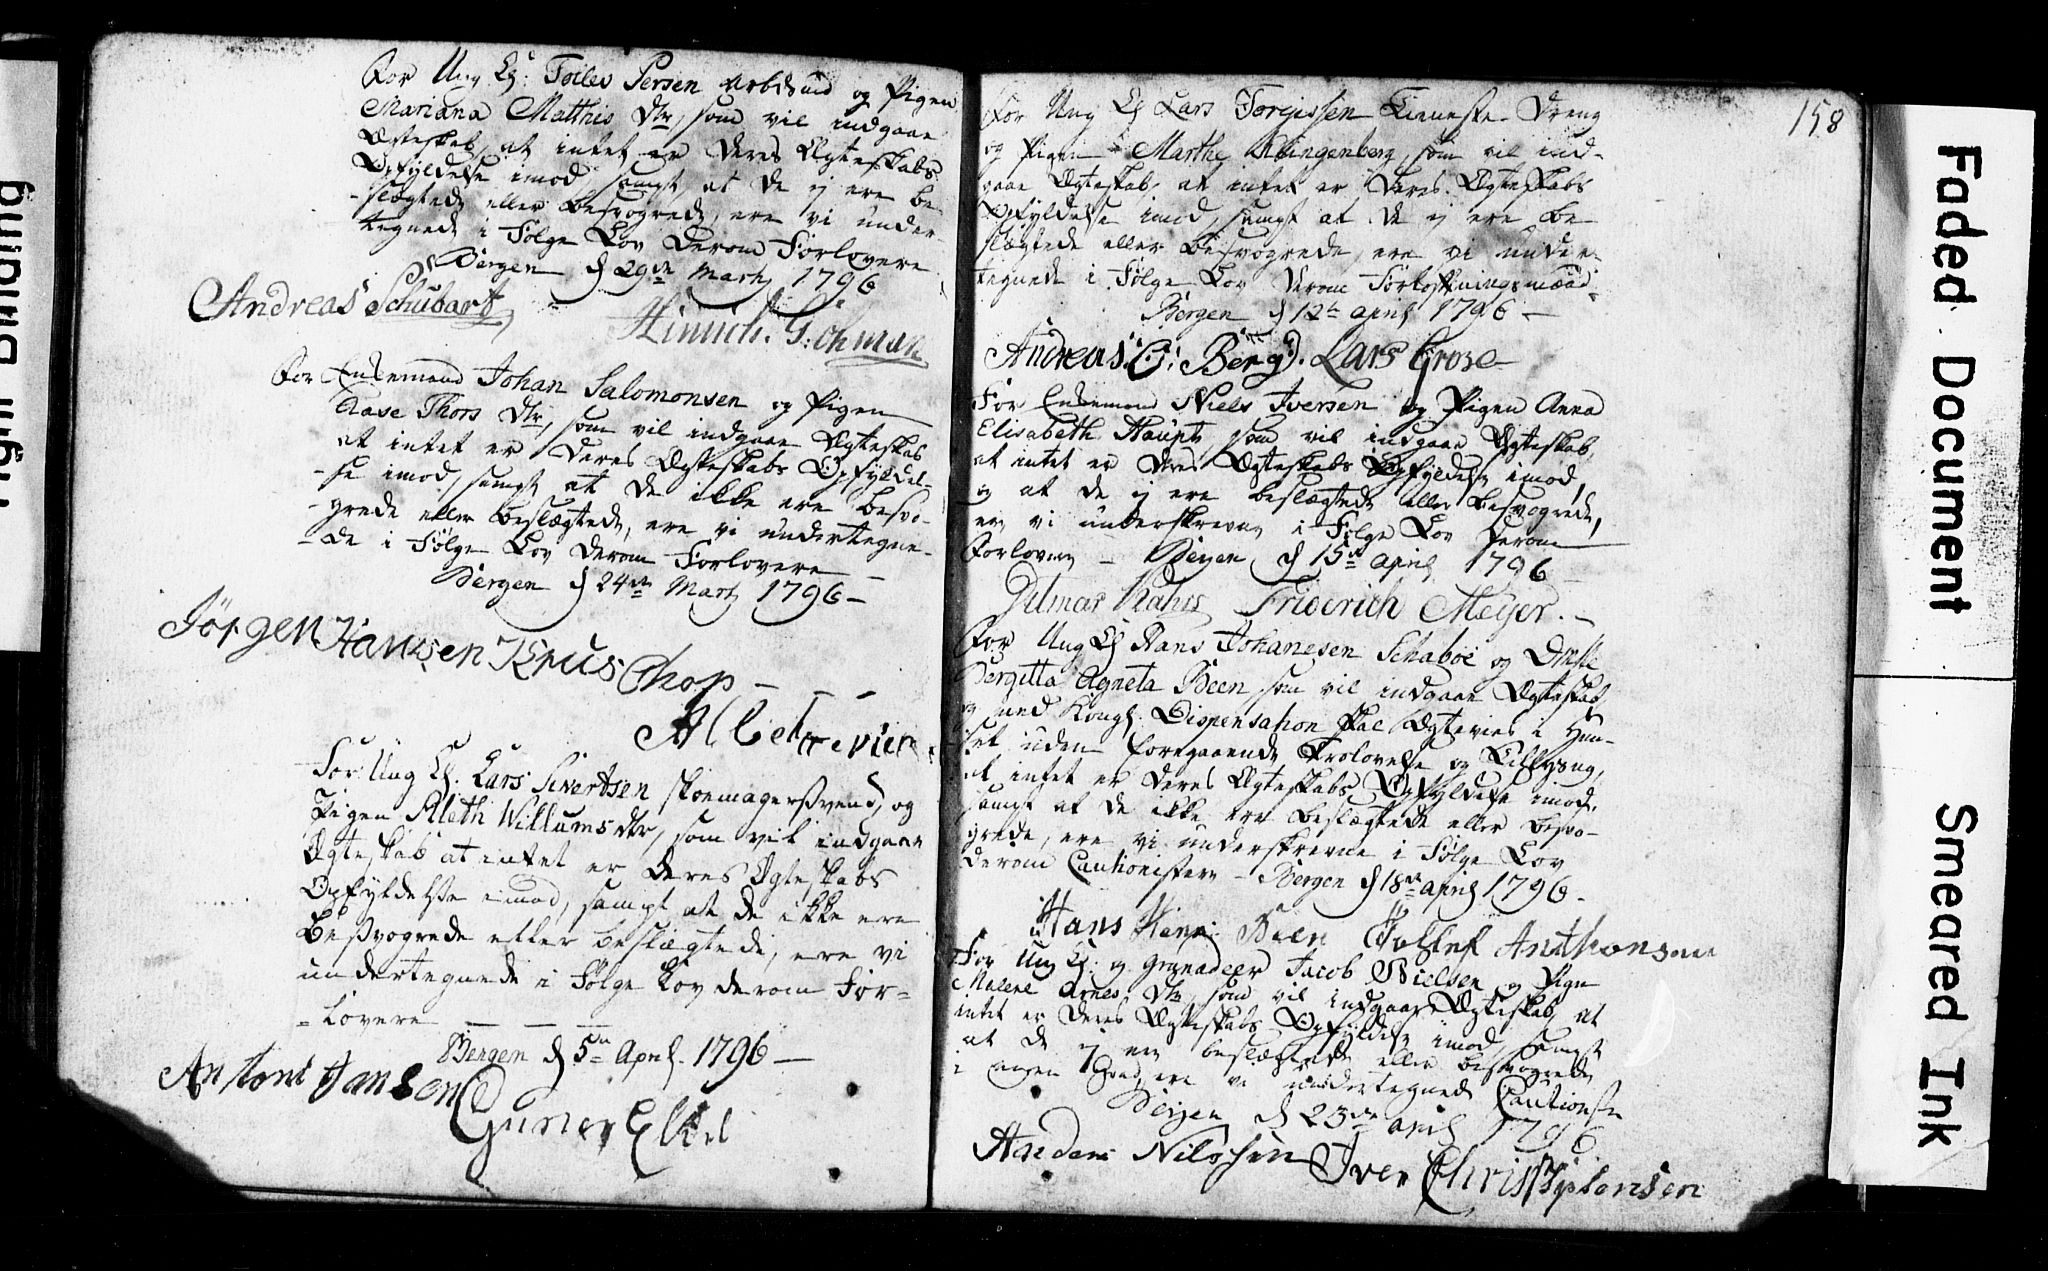 For Ung Kl: Tollev Persen Arbdsmd og Pigen
Mariana Matthis dtr, som vil indgaae
Ægteskab, at intet er deres Ægteskabs
Opfyldelse imod, sampt at de ej ere be-
-slægtede eller besvogrede, ere vi under-
tegnede i Følge Lov derom Forlovere
Bergen d 29de Martj 1796
Andreas Schubart
Hinrich
For Enkemand Johan Salomonsen og Pigen
Aase Thors dtr, som vil indgaae Ægteskab
at intet er deres Ægteskabs Opfyldel-
-se imod, sampt at de ikke ere besvo-
-grede eller beslægtede, ere vi undertegne-
-de i Følge Lov derom Forlovere -
Bergen d 24de Martj 1796 -
Jørgen Hansen Krus Chop - - -
For Ung Kl. Lars Sivertsen skoemagersvend, og
Pigen Aleth Willumsdtr, som vil indgaae
Ægteskab at intet er deres Ægteskabs
Opfyldelsse imod, sampt at de ikke ere
Besvogrede eller beslægtede, ere vi
undertegnede i Følge Lov derom For=
=lovere
Bergen d 5te April. 1796 -
Antoni Janson
158
For Ung Kl Lars Torgjssen Tieneste Dreng
og Pigen Marthe Klingenberg, som vil ind-
gaae Ægteskab, at intet er deres Ægteskabs
Opfyldelse imod, sampt at de ej ere be-
slægtede eller besvogrede, ere vi under-
tegnede i Følge Lov derom Forlovningsmænd.
Bergen d 12te April 1796 -
Andreas. O: Berg. Lars Grose
For Enkemand Niels Iversen og Pigen Anna
Elisabeth Hauptz som vil indgaae Ægteskab,
at intet er deres Ægteskabs Opfyldelse imod,
og at de ej ere beslægtede eller besvogrede,
ere vi underskrevne i Følge Lov derom
Forlovere - Bergen d 15de April 1796 -
Dilmar Kahrs Friderich Meyer. -
For Ung Kl Hans Johanesen Schaboe og
Bergitta Agneta Been som vil indgaae Ægteskab,
og med Kongl: Dispensation skal Ægtevies i Huu-
set uden foregaaende Trolovelse og Tillysng,
at intet er deres Ægteskabs Opfyldelse imod,
sampt at de ikke ere beslægtede eller besvo-
grede, ere vi underskrevne i Følge Lov
derom Cautionister - Bergen d 18de April 1796 -
Hans Henr: Been Tollef Anthonsen
For Ung Kl: og Granadeer Jacob Nielsen og Pign
Malene Arnes dtr, som vil indgaae Ægteskab, at
intet er deres Ægteskabs Opfyldelse imod, sampt
at de ej ere beslægtede eller besvogrede
i nogen Grad, ere vi undertegnede Cautionister
Bergen d 23de April 1796
Anders Nilssen Iver Christophersen
Faded Document Smeared Ink
Tight Binding